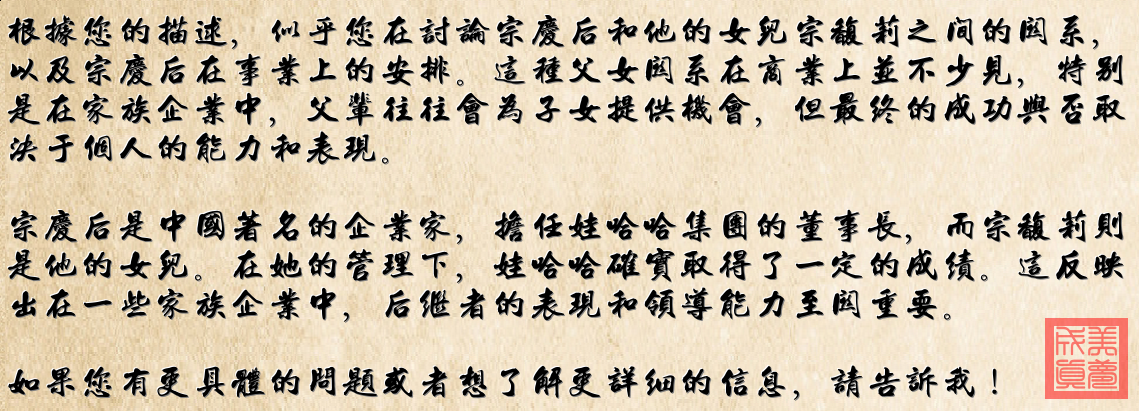 根據您的描述，似乎您在討論宗慶后和他的女兒宗馥莉之间的関系，
以及宗慶后在事業上的安排。這種父女関系在商業上並不少見，特别
是在家族企業中，父輩往往會為子女提供機會，但最终的成功與否取
決于個人的能力和表現。
宗慶后是中國著名的企業家，擔任娃哈哈集團的董事長，而宗馥莉則
是他的女兒。在她的管理下，娃哈哈確實取得了一定的成績。這反映
出在一些家族企業中，后继者的表現和領導能力至関重要。
如果您有更具體的問題或者想了解更詳細的信息，請告訴我！
美夢
成真